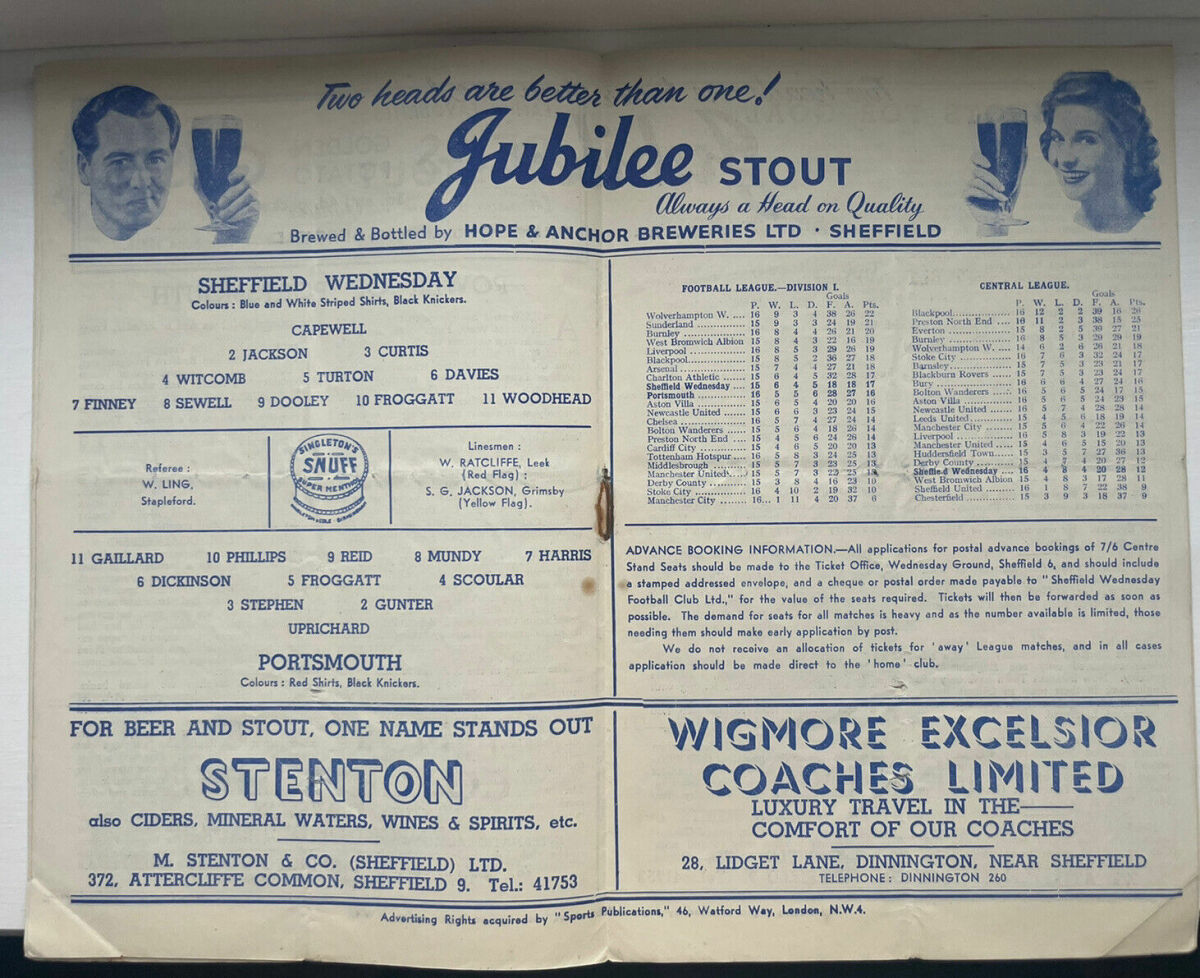 Two heads are better than one!
Jubilee STOUT
Always a Head on Quality
Brewed & Bottled by HOPE & ANCHOR BREWERIES LTD · SHEFFIELD
SHEFFIELD WEDNESDAY
Colours : Blue and White Striped Shirts, Black Knickers.
CAPEWELL
2 JACKSON 3 CURTIS
4 WITCOMB 5 TURTON 6 DAVIES
7 FINNEY 8 SEWELL 9 DOOLEY 10 FROGGATT 11 WOODHEAD
Referee :
W. LING,
Stapleford.
SINGLETON'S
SNUFF
SUPER MENTHOL
Linesmen :
W. RATCLIFFE, Leek
(Red Flag) :
S. G. JACKSON, Grimsby
(Yellow Flag).
11 GAILLARD 10 PHILLIPS 9 REID 8 MUNDY 7 HARRIS
6 DICKINSON 5 FROGGATT 4 SCOULAR
3 STEPHEN 2 GUNTER
UPRICHARD
PORTSMOUTH
Colours : Red Shirts, Black Knickers.
FOOTBALL LEAGUE.—DIVISION I.
Goals
P. W. L. D. F. A. Pts.
Wolverhampton W. .... 16 9 3 4 38 26 22
Sunderland ............ 15 9 3 3 24 19 21
Burnley ............ 16 8 4 4 26 21 20
West Bromwich Albion 15 8 4 3 22 16 19
Liverpool ............ 16 8 5 3 29 26 19
Blackpool ............ 15 8 5 2 36 27 18
Arsenal ............ 15 7 4 4 27 21 18
Charlton Athletic ...... 15 6 4 5 32 28 17
Sheffield Wednesday .... 15 6 4 5 18 18 17
Portsmouth ............ 16 5 5 6 28 27 16
Aston Villa ............ 15 6 5 4 20 20 16
Newcastle United ...... 15 6 6 3 23 24 15
Chelsea ............ 16 5 7 4 27 24 14
Bolton Wanderers ...... 15 5 6 4 18 26 14
Preston North End .... 15 4 5 6 24 26 14
Cardiff City ............ 15 4 6 5 20 20 13
Tottenham Hotspur .... 16 5 8 3 24 25 13
Middlesbrough ........ 15 5 7 3 23 25 13
Manchester United .... 15 5 7 3 23 25 13
Derby County .......... 15 3 8 4 16 23 10
Stoke City ............ 16 4 10 2 19 32 10
Manchester City ...... 16 1 11 4 20 37 6
CENTRAL LEAGUE.
Goals
P. W. L. D. F. A. Pts.
Blackpool ............ 16 12 2 2 39 16 26
Preston North End .... 16 11 2 3 38 15 25
Everton ............ 15 8 2 5 39 27 21
Burnley ............ 16 8 5 3 29 29 19
Wolverhampton W. .... 14 6 2 6 26 21 18
Stoke City ............ 16 7 6 3 32 24 17
Barnsley ............ 15 7 5 3 23 21 17
Blackburn Rovers ...... 15 7 5 3 23 24 17
Bury ............ 16 6 6 4 27 24 16
Bolton Wanderers ...... 16 5 6 5 24 17 15
Aston Villa ............ 16 5 6 5 24 23 15
Newcastle United ...... 16 5 7 4 28 28 14
Leeds United .......... 15 4 5 6 18 19 14
Manchester City ...... 16 4 6 6 22 26 14
Liverpool ............ 16 5 8 3 19 22 13
Manchester United .... 15 4 6 5 15 20 13
Huddersfield Town .... 15 3 5 7 27 36 13
Derby County .......... 15 4 7 4 20 27 12
Sheffield Wednesday .... 16 4 8 4 20 28 12
West Bromwich Albion 15 4 8 3 17 28 11
Sheffield United ...... 16 1 8 7 22 38 9
Chesterfield .......... 15 3 9 3 18 37 9
ADVANCE BOOKING INFORMATION.—All applications for postal advance bookings of 7/6 Centre
Stand Seats should be made to the Ticket Office, Wednesday Ground, Sheffield 6, and should include
a stamped addressed envelope, and a cheque or postal order made payable to " Sheffield Wednesday
Football Club Ltd.," for the value of the seats required. Tickets will then be forwarded as soon as
possible. The demand for seats for all matches is heavy and as the number available is limited, those
needing them should make early application by post.
We do not receive an allocation of tickets for 'away' League matches, and in all cases
application should be made direct to the 'home' club.
FOR BEER AND STOUT, ONE NAME STANDS OUT
STENTON
also CIDERS, MINERAL WATERS, WINES & SPIRITS, etc.
M. STENTON & CO. (SHEFFIELD) LTD.
372, ATTERCLIFFE COMMON, SHEFFIELD 9. Tel.: 41753
WIGMORE EXCELSIOR
COACHES LIMITED
LUXURY TRAVEL IN THE——
COMFORT OF OUR COACHES
28, LIDGET LANE, DINNINGTON, NEAR SHEFFIELD
TELEPHONE: DINNINGTON 260
Advertising Rights acquired by "Sports Publications," 46, Watford Way, London, N.W.4.